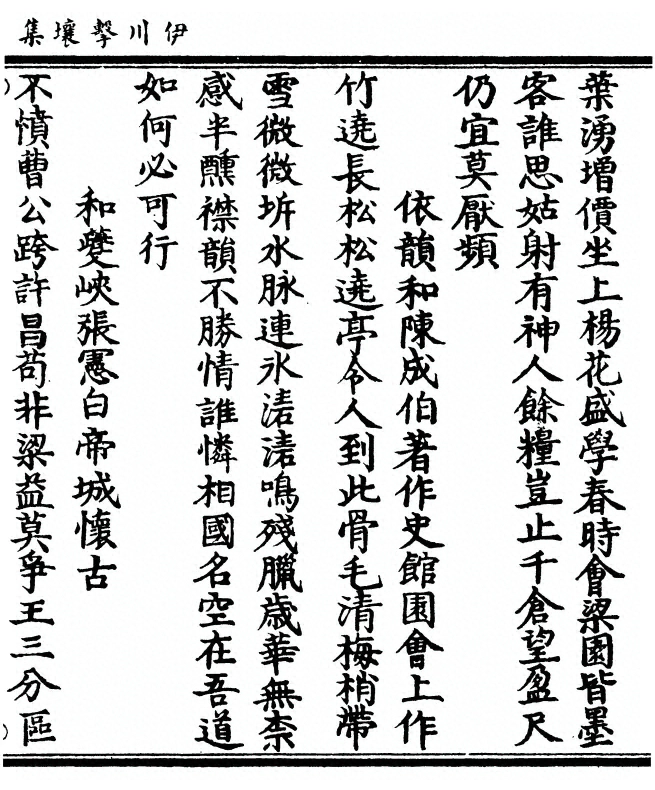 伊川擊壤集
葉湧増價坐上楊花盛學春時會梁園皆墨
客誰思姑射有神人餘糧豈止千倉望盈尺
仍宜莫厭頻
依韻和陳成伯著作史館園會上作
竹遶長松松遶亭令人到此骨毛清梅梢帶
雪微微坼水脉連氷濇濇鳴殘臘歳華無柰
感半醺襟韻不勝情誰憐相國名空在吾道
如何必可行
和夔峽張憲白帝城懷古
不憤曹公跨許昌苟非梁益莫爭王三分區